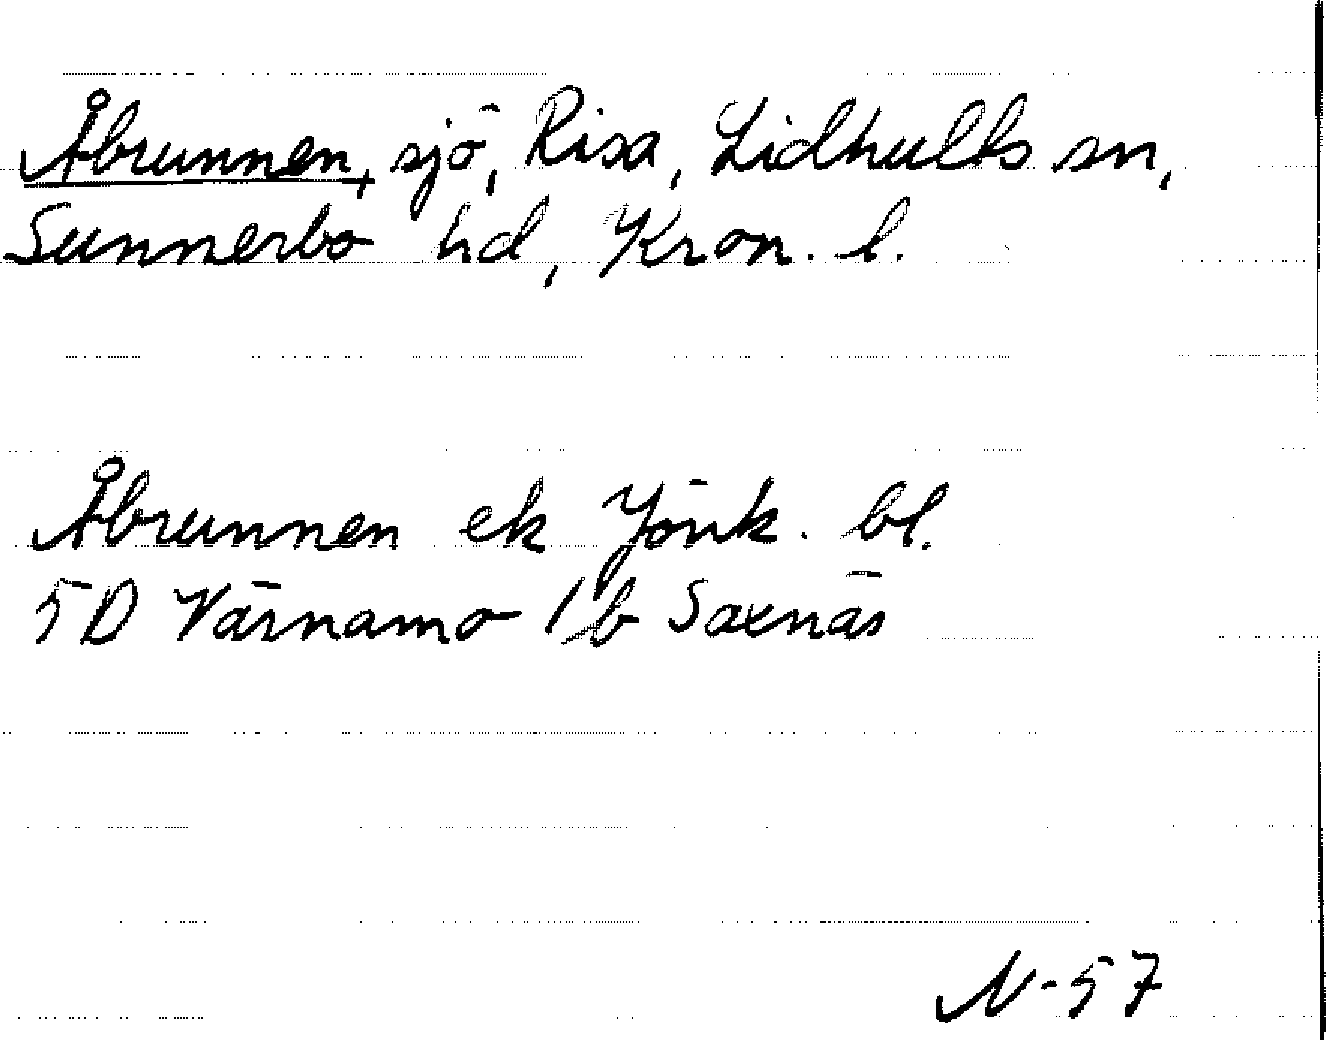 Åbrunnen, sjö, Risa, Lidhults sn,
Sunnerbo hd, Kron. l.
Åbrunnen ek Jönk. bl.
5D Värnamo 1b Saxnäs
N-57